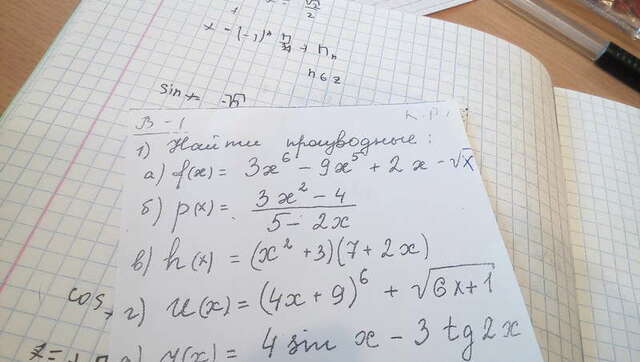 x = √2/2
x = (-1)ⁿ π/4 + πn
n∈z
sin x =
К.р.
В-1
1) Найти производные:
а) f(x) = 3x⁶ - 9x⁵ + 2x - √x
б) p(x) = (3x² - 4)/(5 - 2x)
в) h(x) = (x² + 3)(7 + 2x)
г) u(x) = (4x + 9)⁶ + √(6x + 1)
4 sin x - 3 tg 2x
cos